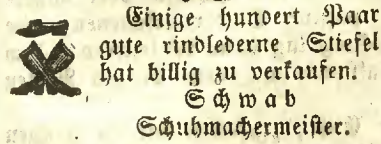 Einige hundert Paar
gute rindlederne Stiefel
hat billig zu verkaufen.
Schwab
Schuhmachermeister.